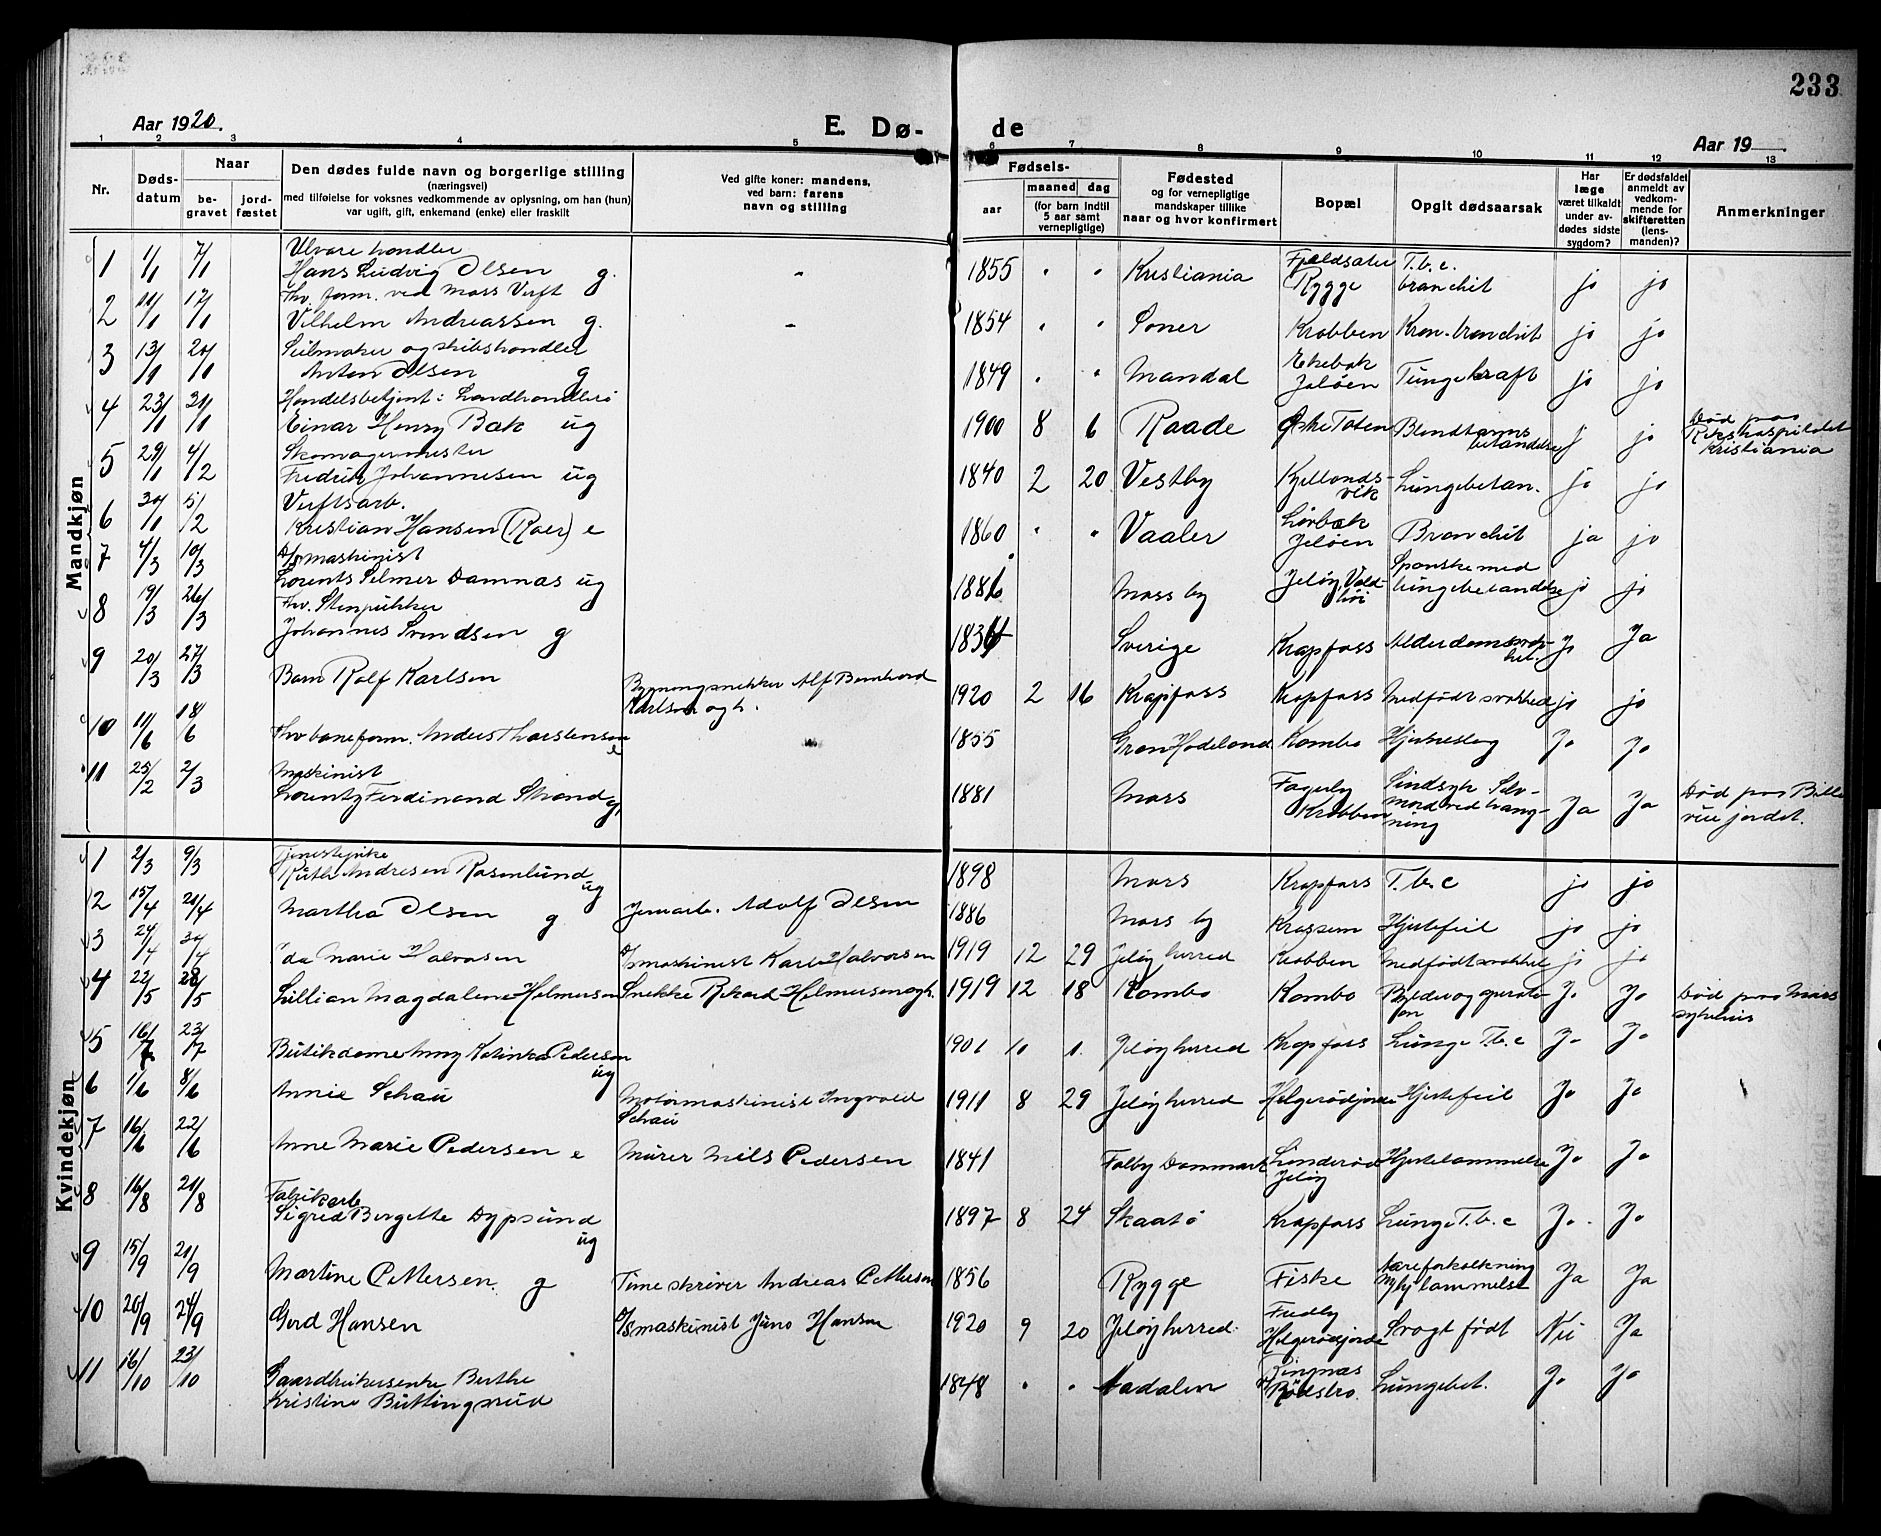 233
Aar 1920.
E. Dø-
de
Aar 19
1 2 3 4 5 6 7 8 9 10 11 12 13
Nr.
Døds-
datum
Naar
be-
gravet
jord-
fæstet
Den dødes fulde navn og borgerlige stilling
(næringsvei)
med tilføielse for voksnes vedkommende av oplysning, om han (hun)
var ugift, gift, enkemand (enke) eller fraskilt
Ved gifte koner: mandens,
ved barn: farens
navn og stilling
Fødsels-
aar
maaned dag
(for barn indtil
5 aar samt
vernepligtige)
Fødested
og for vernepligtige
mandskaper tillike
naar og hvor konfirmert
Bopæl
Opgit dødsaarsak
Har
læge
været tilkaldt
under av-
dødes sidste
sygdom?
Er dødsfaldet
anmeldt av
vedkom-
mende for
skifteretten
(lens-
manden)?
Anmerkninger
Mandkjøn
1 1/1 7/1 handler
Hans Ludvig Olsen g. - 1855 " " Kristiania Rygge T.b.c. bronchit jo jo
2 11/1 17/1 Thv. form. ved Moss Verft
Vilhelm Andreassen g. - 1854 " " Soner Krobben Kron. bronchit jo jo
3 13/1 20/1 Seilmaker og skibshandler
Anton Olsen g 1849 " " Mandal Ekebak Jeløen Tungekraft jo jo
4 23/1 30/1 Handelsbetjent i Landhandleri
Einar Henry Bæk ug 1900 8 6 Raade Østre Toten Blindtarmsbetændelse j jo Død paa Rikshospitalet Kristiania
5 29/1 4/2 Skomagermester
Fredrik Johannesen ug 1840 2 20 Vestby Kjellandsvik Lungebetæn. jo jo
6 30/1 5/2 Verftsarb.
Kristian Hansen (Roer) e 1860 " " Vaaler Lørbæk Jeløen Bronchit ja jo
7 4/3 10/3 D/Smaskinist
Lorents Selmer Damnæs ug 1886 Moss by Jeløy Spanske med lungebetændelse jo jo
8 19/3 26/3 Thv. Stenpukker
Johannes Svendsen g Sverige Krapfoss jo Ja
9 20/3 27/3 Barn Rolf Karlsen Bygningsnekker Alf Bernhard
Karlsen og h. 1920 2 16 Krapfoss Krapfoss Medfødt svakhed jo jo
10 11/6 18/6 Thv baneform. Anders Thorstensen e 1855 Gran Hadeland Kambo Hjerteslag Jo Jo
11 25/2 2/3 Maskinist
Lorentz Ferdinand Strand g, 1881 Moss Fagerby Krobben Sindsyk Selvmord ved hængning Ja Ja Død paa Bellevue jordet.
Kvindekjøn
1 2/3 9/3 Tjenestepike
Ruth Andresen Rosenlund ug 1898 Moss Krapfoss T.b.c jo jo
2 15/4 20/4 Martha Olsen g Jernarb. Adolf Olsen 1886 Moss by Krossern Hjertefeil jo jo
3 24/4 30/4 Ida Marie Halvorsen D/Smaskinist Karl Halvorsen 1919 12 29 Jeløy herred Krobben Medfødt svakhet jo jo
4 22/5 28/5 Lillian Magdalene Helmersen Snekker Rikard Helmersen og h. 1919 12 18 Kambo Kambo Jo Jo Død paa Moss sykehus
5 16/7 23/7 Butikdame Anny Katinka Pedersen ug 1901 10 1. Jeløy herred Krapfoss Lunge T.b.c Jo Jo
6 1/6 8/6 Annie Schau Motormaskinist Ingvald
Schau 1911 8 29 Jeløy herred Helgerødjordet Hjertefeil Jo Jo
7 16/6 22/6 Anne Marie Pedersen e Murer Nils Pedersen 1841 Falby Danmark Jeløy Hjertelammelse Jo Jo
8 16/8 21/8 Fabrikarb
Sigred Bergette Dypsund ug 1897 8 24 Skaatø Krapfoss Lunge T.b.c Jo. Jo
9 15/9 21/9 Martine Pettersen. g Timeskriver Andreas Pettersen 1856 Rygge Fiske Aareforkalkning lammelse Ja Ja
10 20/9 24/9 Gerd Hansen D/Smaskinist Juno Hansen 1920 9 20 Jeløy herred. Fredly Helgerødjordet Svagt født Nei Ja
11 16/10 23/10 Gaardbrukerenke Berthe
Kristine Buttingsrud 1848 " " Aadalen Lungebet. Jo Jo